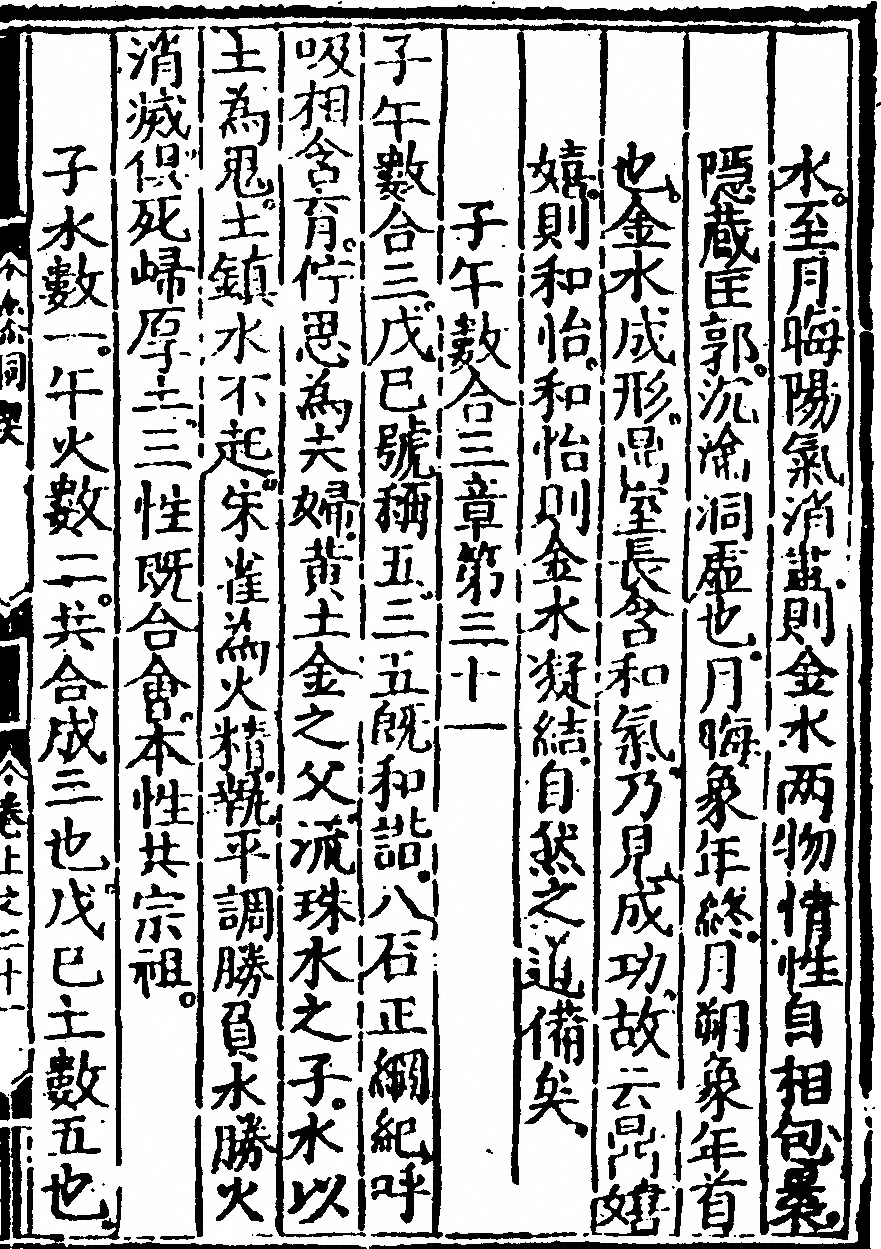 水至月晦陽氣消盡則金水两物情性自相包裹
隱藏匡郭沉淪洞虛也月晦象年終月朔象年首
也金水成形鼎室長含和氣乃見成功故云鼎
嬉則和怡和怡則金水凝結自然之道備矣
子午數合三章第三十一
子午數合三戊巳號稱五三五旣和諧八石正綱紀呼
吸相含育佇思為夫婦黃土金之父流珠水之子水以
土為鬼土鎮水不起朱雀為火精執平調勝負水勝火
消滅俱死歸厚土三性既合會本性共宗祖
子水數一午火数二共合成三也戊巳土數五也
契
卷上之二十一